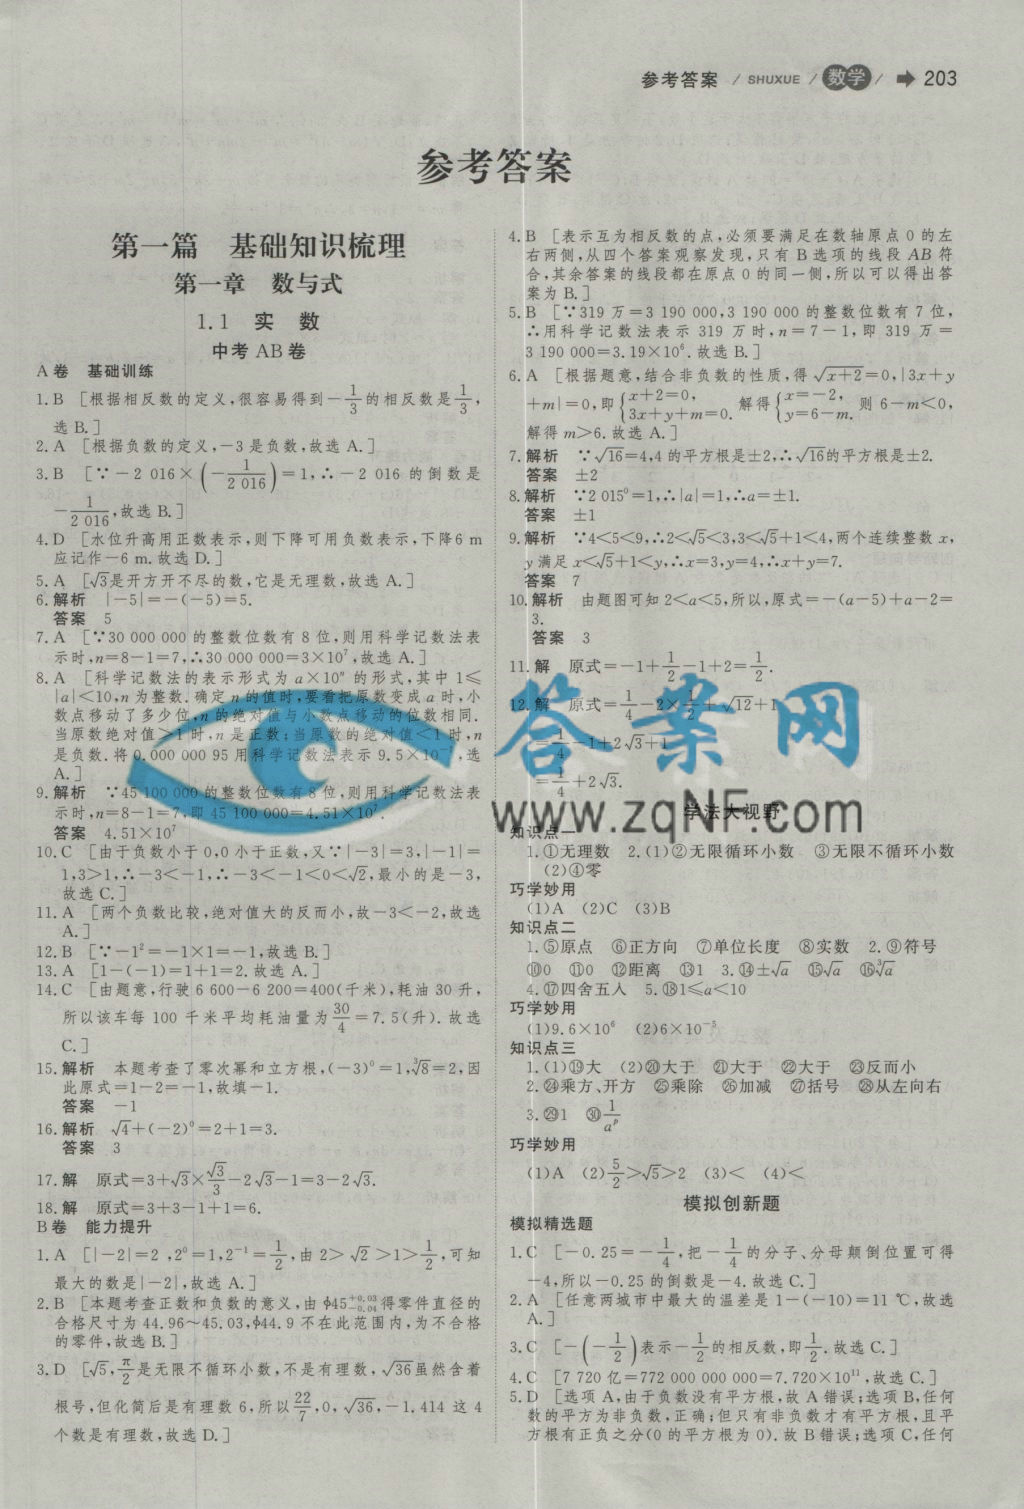 参考答案 / SHUXUE / 数学 / → 203
参考答案
第一篇 基础知识梳理
第一章 数与式
1.1 实 数
中考 AB 卷
A 卷 基础训练
1. B [根据相反数的定义,很容易得到-1/3的相反数是1/3,
选 B.]
2. A [根据负数的定义,-3 是负数,故选 A.]
3. B [∵-2 016×(-1/2 016)=1,∴-2 016 的倒数是
-1/2 016,故选 B.]
4. D [水位升高用正数表示,则下降可用负数表示,下降6 m
应记作-6 m.故选 D.]
5. A [√3是开方开不尽的数,它是无理数,故选 A.]
6. 解析 |-5|=-(-5)=5.
答案 5
7. A [∵30 000 000 的整数位数有 8 位,则用科学记数法表
示时,n=8-1=7,∴30 000 000=3×10⁷,故选 A.]
8. A [科学记数法的表示形式为 a×10ⁿ 的形式,其中 1≤
|a|<10,n 为整数.确定 n 的值时,要看把原数变成 a 时,小
数点移动了多少位,n 的绝对值与小数点移动的位数相同.
当原数绝对值>1 时,n 是正数;当原数的绝对值<1 时,n
是负数.将 0.000 000 95 用科学记数法表示 9.5×10⁻⁷,选
A.]
9. 解析 ∵45 100 000 的整数位数有 8 位,则用科学记数法表
示时,n=8-1=7,即 45 100 000=4.51×10⁷.
答案 4.51×10⁷
10. C [由于负数小于 0,0 小于正数,又∵|-3|=3,|-1|=
1,3>1,∴-3<-1,∴-3<-1<0<√2,最小的是-3,
故选 C.]
11. A [两个负数比较,绝对值大的反而小,故-3<-2,故选
A.]
12. B [∵-1²=-1×1=-1,故选 B.]
13. A [1-(-1)=1+1=2.故选 A.]
14. C [由题意,行驶 6 600-6 200=400(千米),耗油 30 升,
所以该车每 100 千米平均耗油量为30/4=7.5(升).故选
C.]
15. 解析 本题考查了零次幂和立方根,(-3)⁰=1,³√8=2,因
此原式=1-2=-1,故填-1.
答案 -1
16. 解析 √4+(-2)⁰=2+1=3.
答案 3
17. 解 原式=3+√3×√3/3-2√3-1=3-2√3.
18. 解 原式=3+3-1+1=6.
B 卷 能力提升
1. A [|-2|=2,2⁰=1,2⁻¹=1/2,由 2>√2>1>1/2,可知
最大的数是|-2|,故选 A.]
2. B [本题考查正数和负数的意义,由 ϕ45+0.03-0.04得零件直径的
合格尺寸为 44.96~45.03,ϕ44.9 不在此范围内,为不合格
的零件,故选 B.]
3. D [√5,π/2是无限不循环小数,不是有理数,√36虽然含着
根号,但化简后是有理数 6,所以22/7,0,√36,-1.414 这 4
个数是有理数,故选 D.]
4. B [表示互为相反数的点,必须要满足在数轴原点 0 的左
右两侧,从四个答案观察发现,只有 B 选项的线段 AB 符
合,其余答案的线段都在原点 0 的同一侧,所以可以得出答
案为 B.]
5. B [∵319 万=3 190 000,3 190 000 的整数位数有 7 位,
∴用科学记数法表示 319 万时,n=7-1,即 319 万=
3 190 000=3.19×10⁶.故选 B.]
6. A [根据题意,结合非负数的性质,得√x+2=0,|3x+y
+m|=0,即{x+2=0, 3x+y+m=0. 解得{x=-2, y=6-m. 则 6-m<0,
解得 m>6.故选 A.]
7. 解析 ∵√16=4,4 的平方根是±2,∴√16的平方根是±2.
答案 ±2
8. 解析 ∵2 015⁰=1,∴|a|=1,∴a=±1.
答案 ±1
9. 解析 ∵4<5<9,∴2<√5<3,3<√5+1<4,两个连续整数 x,
y 满足 x<√5+1<y,∴x=3,y=4,∴x+y=7.
答案 7
10. 解析 由题图可知 2<a<5,所以,原式=-(a-5)+a-2=
3.
答案 3
11. 解 原式=-1+1/2-1+2=1/2.
12. 解 原式=1/4-2×1/2+√12+1
=1/4-1+2√3+1
=1/4+2√3.
学法大视野
知识点一
1. ①无理数 2. (1)②无限循环小数 ③无限不循环小数
(2)④零
巧学妙用
(1)A (2)C (3)B
知识点二
1. ⑤原点 ⑥正方向 ⑦单位长度 ⑧实数 2. ⑨符号
⑩0 ⑪0 ⑫距离 ⑬1 3. ⑭±√a ⑮√a ⑯³√a
4. ⑰四舍五入 5. ⑱1≤a<10
巧学妙用
(1)9.6×10⁶ (2)6×10⁻⁵
知识点三
1. (1)⑲大 (2)⑳大于 ㉑大于 ㉒大于 ㉓反而小
2. ㉔乘方、开方 ㉕乘除 ㉖加减 ㉗括号 ㉘从左向右
3. ㉙1 ㉚1/aᵖ
巧学妙用
(1)A (2)5/2>√5>2 (3)< (4)<
模拟创新题
模拟精选题
1. C [-0.25=-1/4,把-1/4的分子、分母颠倒位置可得
-4,所以-0.25 的倒数是-4.故选 C.]
2. A [任意两城市中最大的温差是 1-(-10)=11 ℃,故选
A.]
3. C [-(-1/2)表示-1/2的相反数,即1/2.故选 C.]
4. C [7 720 亿=772 000 000 000=7.720×10¹¹,故选 C.]
5. D [选项 A,由于负数没有平方根,故 A 错误;选项 B,任何
数的平方为非负数,正确;但只有非负数才有平方根,且平
方根有正负之分(0 的平方根为 0).故 B 错误;选项 C,任何
答案网
www.zqNF.com